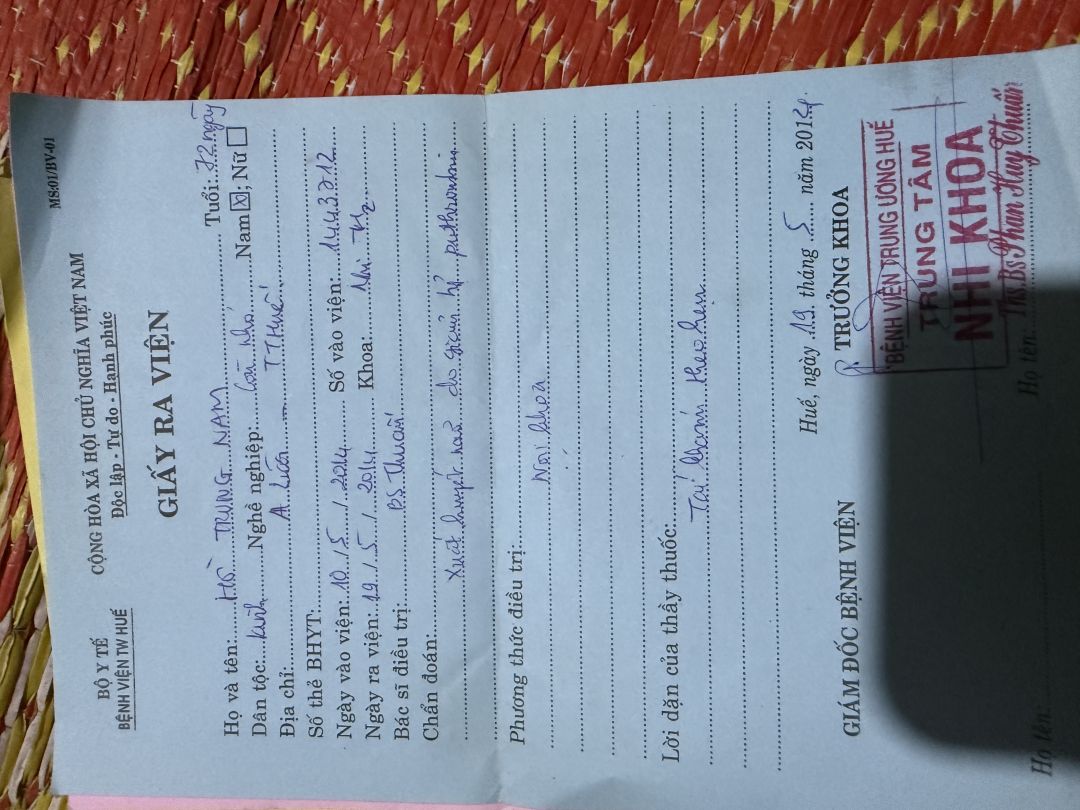 BỘ Y TẾ
BỆNH VIỆN TW HUẾ
CỘNG HÒA XÃ HỘI CHỦ NGHĨA VIỆT NAM
Độc lập - Tự do - Hạnh phúc
MS:01/BV-01
GIẤY RA VIỆN
Họ và tên: HỒ TRUNG NAM Tuổi: 32 ngày
Dân tộc: kinh Nghề nghiệp: còn nhỏ Nam ☒; Nữ ☐
Địa chỉ: A Lưới T.T.Huế
Số thẻ BHYT:
Ngày vào viện: 10/5/2014 Số vào viện: 1443712
Ngày ra viện: 19/5/2014 Khoa: Nhi
Bác sĩ điều trị: BS Thuấn
Chẩn đoán:
Xuất huyết não do giảm tỷ prothrombin
Phương thức điều trị:
Nội khoa
Lời dặn của thầy thuốc:
Tái khám theo hẹn
Huế, ngày 19 tháng 5 năm 2014
GIÁM ĐỐC BỆNH VIỆN
TRƯỞNG KHOA
BỆNH VIỆN TRUNG ƯƠNG HUẾ
TRUNG TÂM
NHI KHOA
Họ tên:
Họ tên: Ths.Bs Phan Huy Thuấn